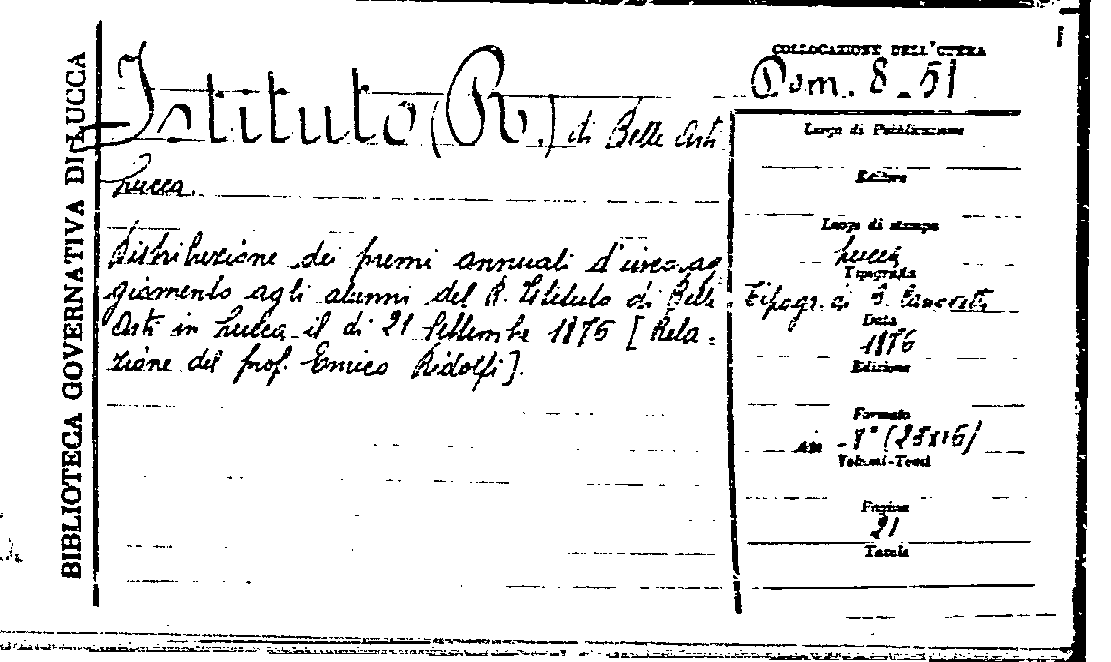 BIBLIOTECA GOVERNATIVA DI LUCCA
COLLOCAZIONE DELL'OPERA
Dom. 8_51
Istituto (R.) di Belle Arti
Lucca.
Distribuzione dei premi annuali d'incorag
giamento agli alunni del R. Istituto di Belle
Arti in Lucca il dì 21 Settembre 1876 [Rela=
zione del prof. Enrico Ridolfi].
Luogo di Pubblicazione
Editore
Luogo di stampa
Lucca
Tipografia
Tipogr. di B. Canovetti
Data
1876
Edizione
Formato
in -8° (23x16)
Volumi-Tomi
Pagine
21
Tavole